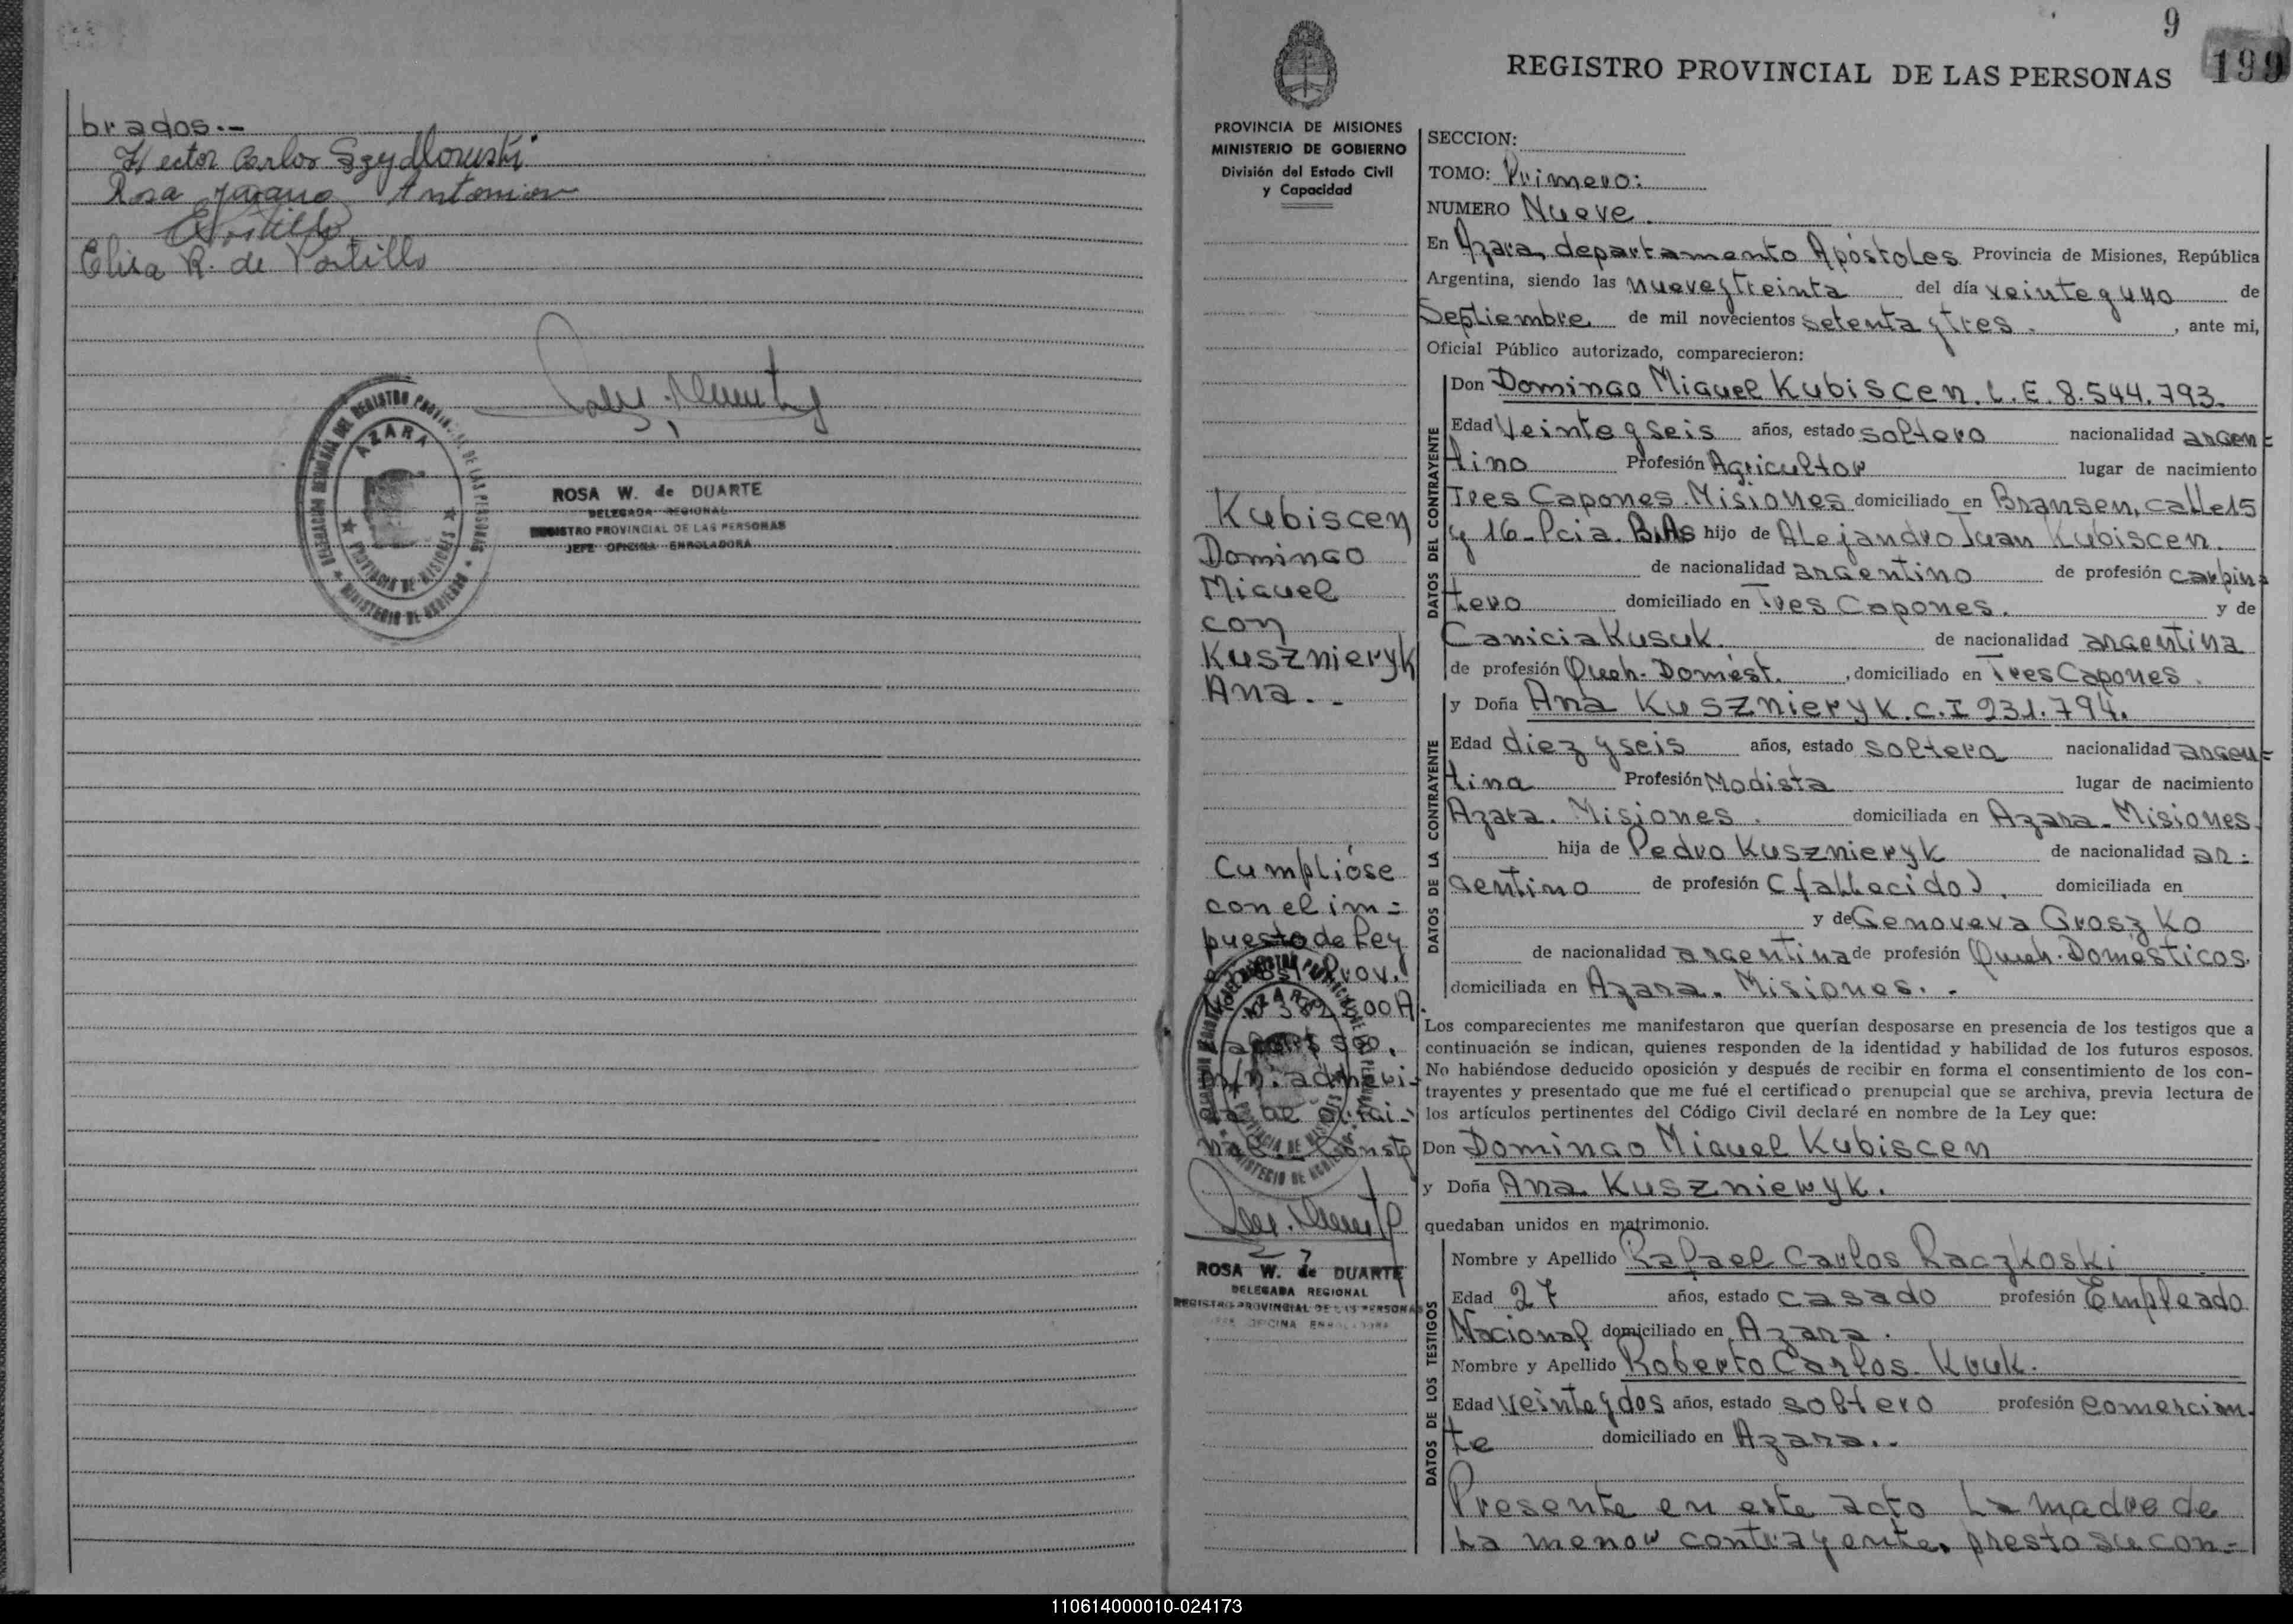 brados.-
Hector Carlos Szydlowski
Rosa Antonion
Elisa R. de Portillo
AZARA
PROVINCIA DE MISIONES
MINISTERIO DE GOBIERNO
ROSA W. de DUARTE
DELEGADA REGIONAL
REGISTRO PROVINCIAL DE LAS PERSONAS
JEFE OFICINA ENROLADORA
9
199
REGISTRO PROVINCIAL DE LAS PERSONAS
PROVINCIA DE MISIONES
MINISTERIO DE GOBIERNO
División del Estado Civil
y Capacidad
Kubiscen
Domingo
Miguel
con
Kusznieryk
Ana.-
Cumplióse
con el im=
puesto de Ley
Prov.
ROSA W. de DUARTE
DELEGADA REGIONAL
REGISTRO PROVINCIAL DE LAS PERSONAS
JEFE OFICINA ENROLADORA
SECCION:
TOMO: Primero:
NUMERO Nueve.
En Azara, departamento Apóstoles Provincia de Misiones, República
Argentina, siendo las nueve y treinta del día veinte y uno de
Septiembre de mil novecientos setenta y tres. , ante mi,
Oficial Público autorizado, comparecieron:
DATOS DEL CONTRAYENTE
Don Domingo Miguel Kubiscen. L.E. 8.544.793.
Edad Veinte y seis años, estado soltero nacionalidad argen=
tino Profesión Agricultor lugar de nacimiento
Tres Capones. Misiones domiciliado en Bransen, calle 15
y 16-Pcia. B.As hijo de Alejandro Juan Kubiscen.
de nacionalidad argentino de profesión carpin=
tero domiciliado en Tres Capones. y de
Canicia Kusuk. de nacionalidad argentina
de profesión Queh. Domést. , domiciliado en Tres Capones.
DATOS DE LA CONTRAYENTE
y Doña Ana Kusznieryk. C.I 231.794.
Edad diez y seis años, estado soltera nacionalidad argen=
tina Profesión Modista lugar de nacimiento
Azara. Misiones. domiciliada en Azara-Misiones.
hija de Pedro Kusznieryk de nacionalidad ar=
gentino de profesión (fallecido). domiciliada en
y de Genoveva Groszko
de nacionalidad argentina de profesión Queh. Domésticos.
domiciliada en Azara. Misiones.-
Los comparecientes me manifestaron que querían desposarse en presencia de los testigos que a
continuación se indican, quienes responden de la identidad y habilidad de los futuros esposos.
No habiéndose deducido oposición y después de recibir en forma el consentimiento de los con-
trayentes y presentado que me fué el certificado prenupcial que se archiva, previa lectura de
los artículos pertinentes del Código Civil declaré en nombre de la Ley que:
Don Domingo Miguel Kubiscen
y Doña Ana Kusznieryk.
quedaban unidos en matrimonio.
DATOS DE LOS TESTIGOS
Nombre y Apellido Rafael Carlos Raczkoski
Edad 27 años, estado casado profesión Empleado
Nacional domiciliado en Azara.
Nombre y Apellido Roberto Carlos Kruk.
Edad veinte y dos años, estado soltero profesión comercian-
te domiciliado en Azara.-
Presente en este acto la madre de
la menor contrayente, presto su con=
110614000010-024173